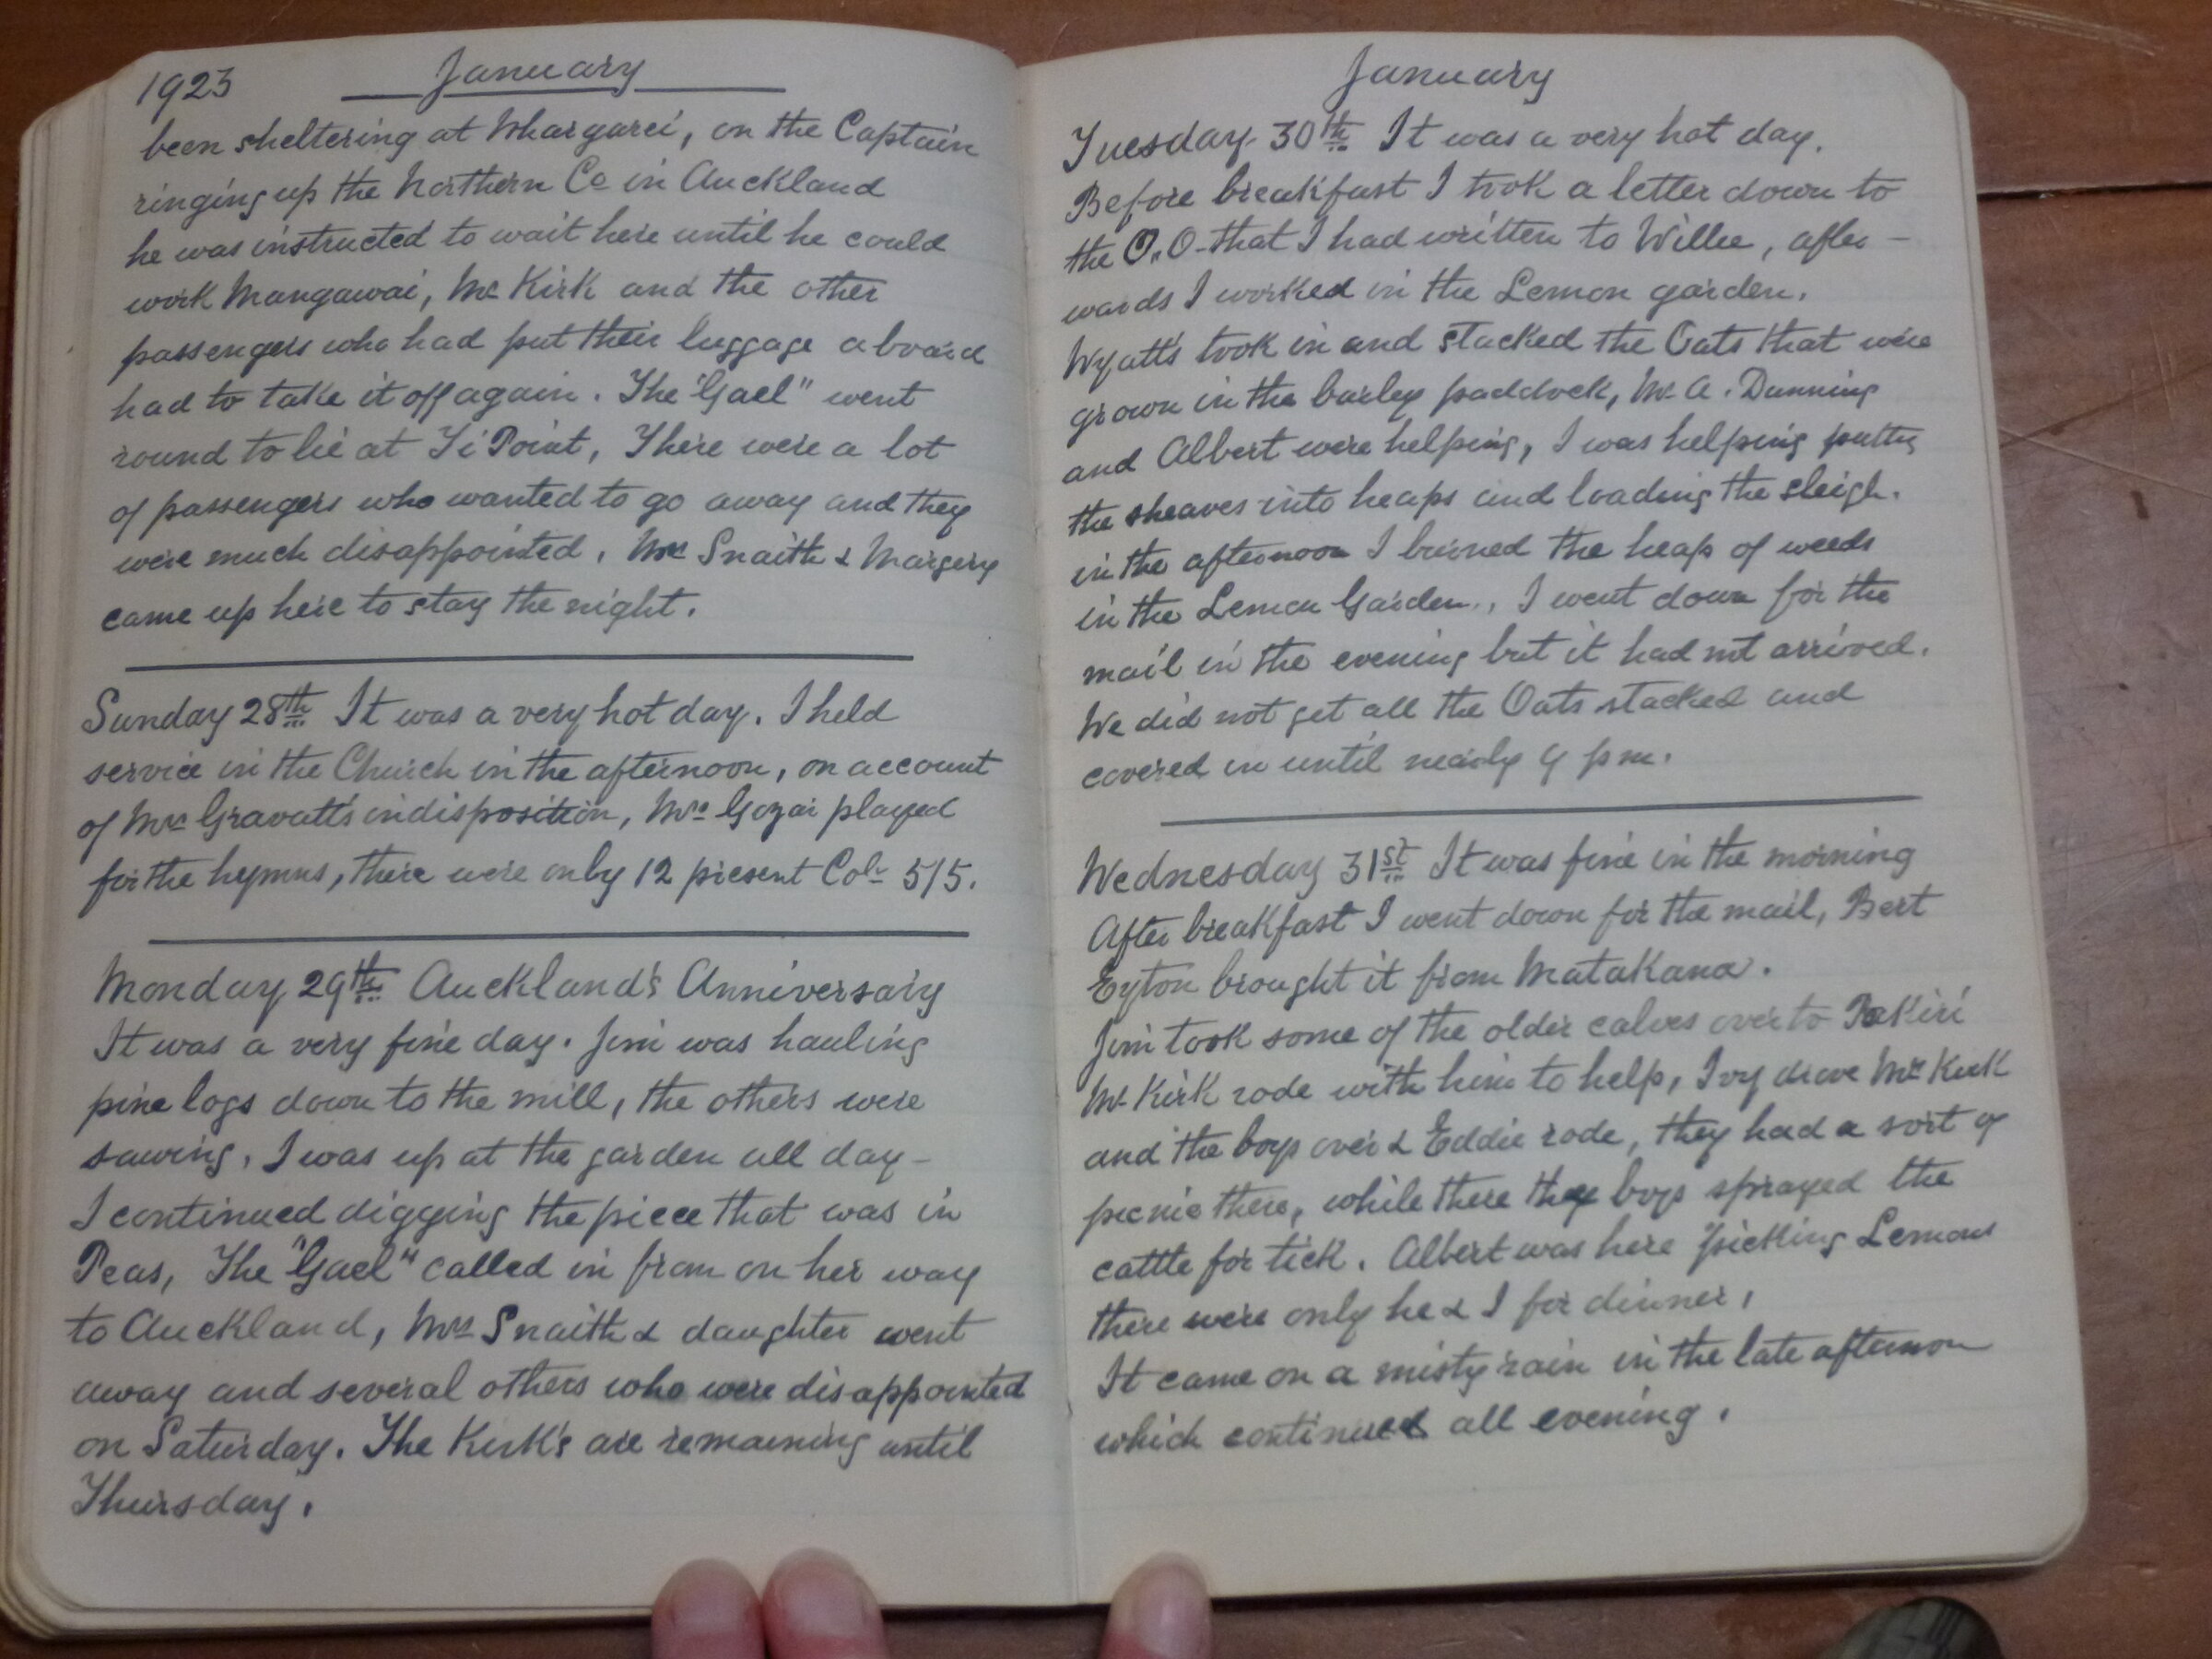 1923 January
been sheltering at Whangarei, on the Captain
ringing up the Northern Co in Auckland
he was instructed to wait here until he could
work Mangawai, Mr Kirk and the other
passengers who had put their luggage aboard
had to take it off again. The "Gael" went
round to lie at Ti Point, There were a lot
of passengers who wanted to go away and they
were much disappointed, Mrs Snaith & Margery
came up here to stay the night.
Sunday 28th It was a very hot day. I held
service in the Church in the afternoon, on account
of Mrs Gravatt's indisposition, Mrs Gozar played
for the hymns, there were only 12 present Col. 5/5.
Monday 29th Auckland's Anniversary
It was a very fine day. Jim was hauling
pine logs down to the mill, the others were
sawing, I was up at the garden all day -
I continued digging the piece that was in
Peas, The "Gael" called in from on her way
to Auckland, Mrs Snaith & daughter went
away and several others who were disappointed
on Saturday. The Kirk's are remaining until
Thursday.
January
Tuesday 30th It was a very hot day.
Before breakfast I took a letter down to
the P.O. that I had written to Willie, after -
wards I worked in the Lemon garden.
Wyatts took in and stacked the Oats that were
grown in the barley paddock, Mr A. Dunning
and Albert were helping, I was helping putting
the sheaves into heaps and loading the sleigh.
in the afternoon I burned the heap of weeds
in the Lemon Garden., I went down for the
mail in the evening but it had not arrived.
We did not get all the Oats stacked and
covered in until nearly 9 pm.
Wednesday 31st It was fine in the morning
After breakfast I went down for the mail, Bert
Eyton brought it from Matakana.
Jim took some of the older calves over to Pakiri
Mr Kirk rode with him to help, Ivy drove Mrs Kirk
and the boys over & Eddie rode, they had a sort of
picnic there, while there they boys sprayed the
cattle for tick. Albert was here picking Lemons
there were only he & I for dinner,
It came on a misty rain in the late afternoon
which continued all evening.